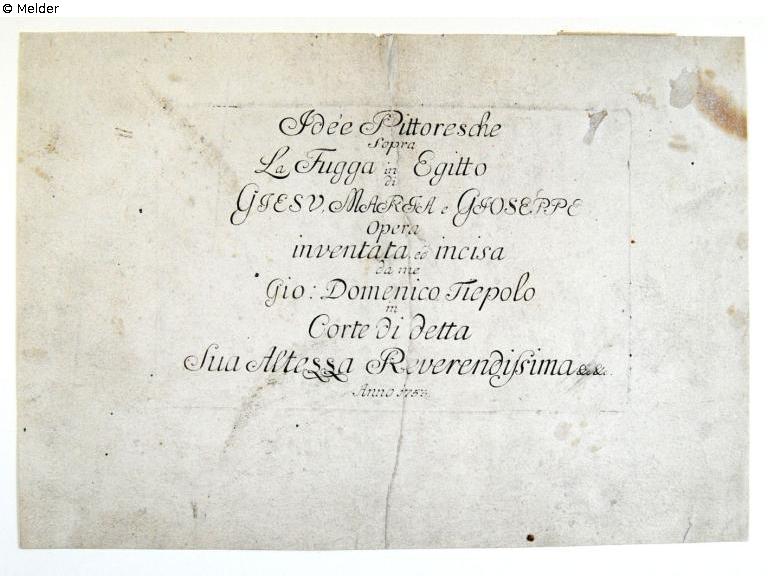 © Melder
Idée Pittoresche
Sopra
La Fugga in Egitto
di
GIESV, MARIA e GIOSÉPPE
Opera
inventata, ed incisa
da me
Gio: Domenico Tiepolo
in
Corte di detta
Sua Altessa Reverendissima &.&.
Anno 1753.